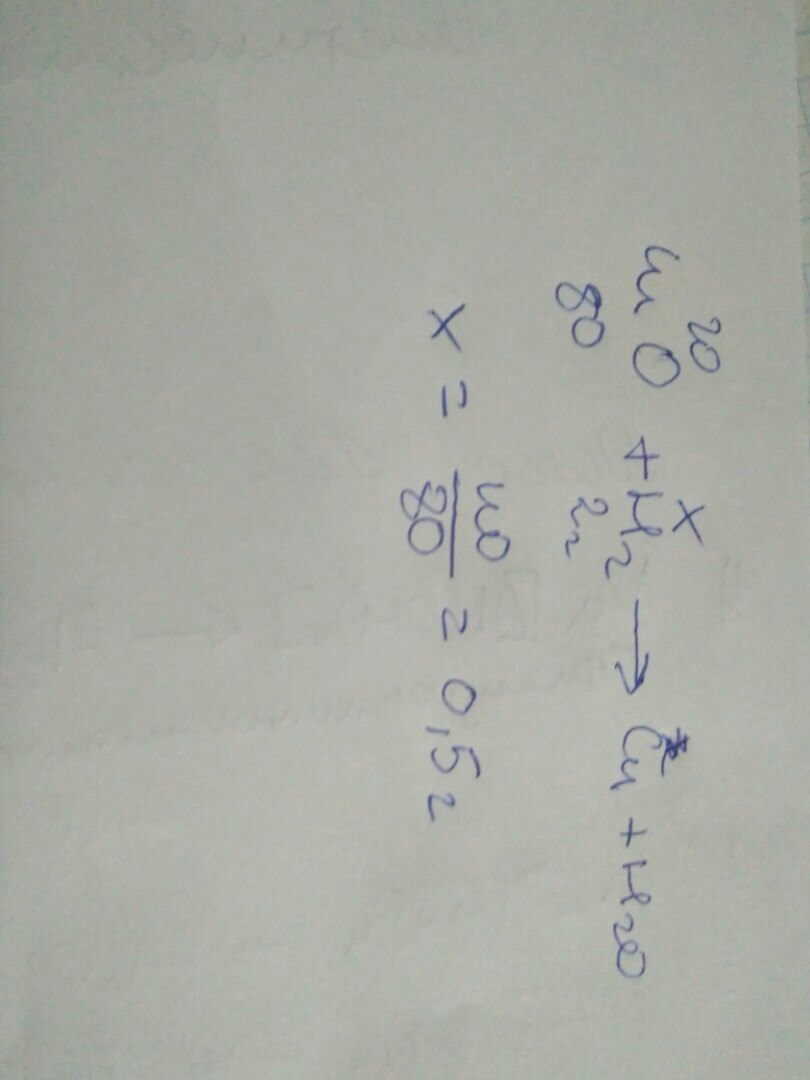 20 x
CuO + H2 → Cu + H2O
80 2г
x = 40/80 = 0,5г